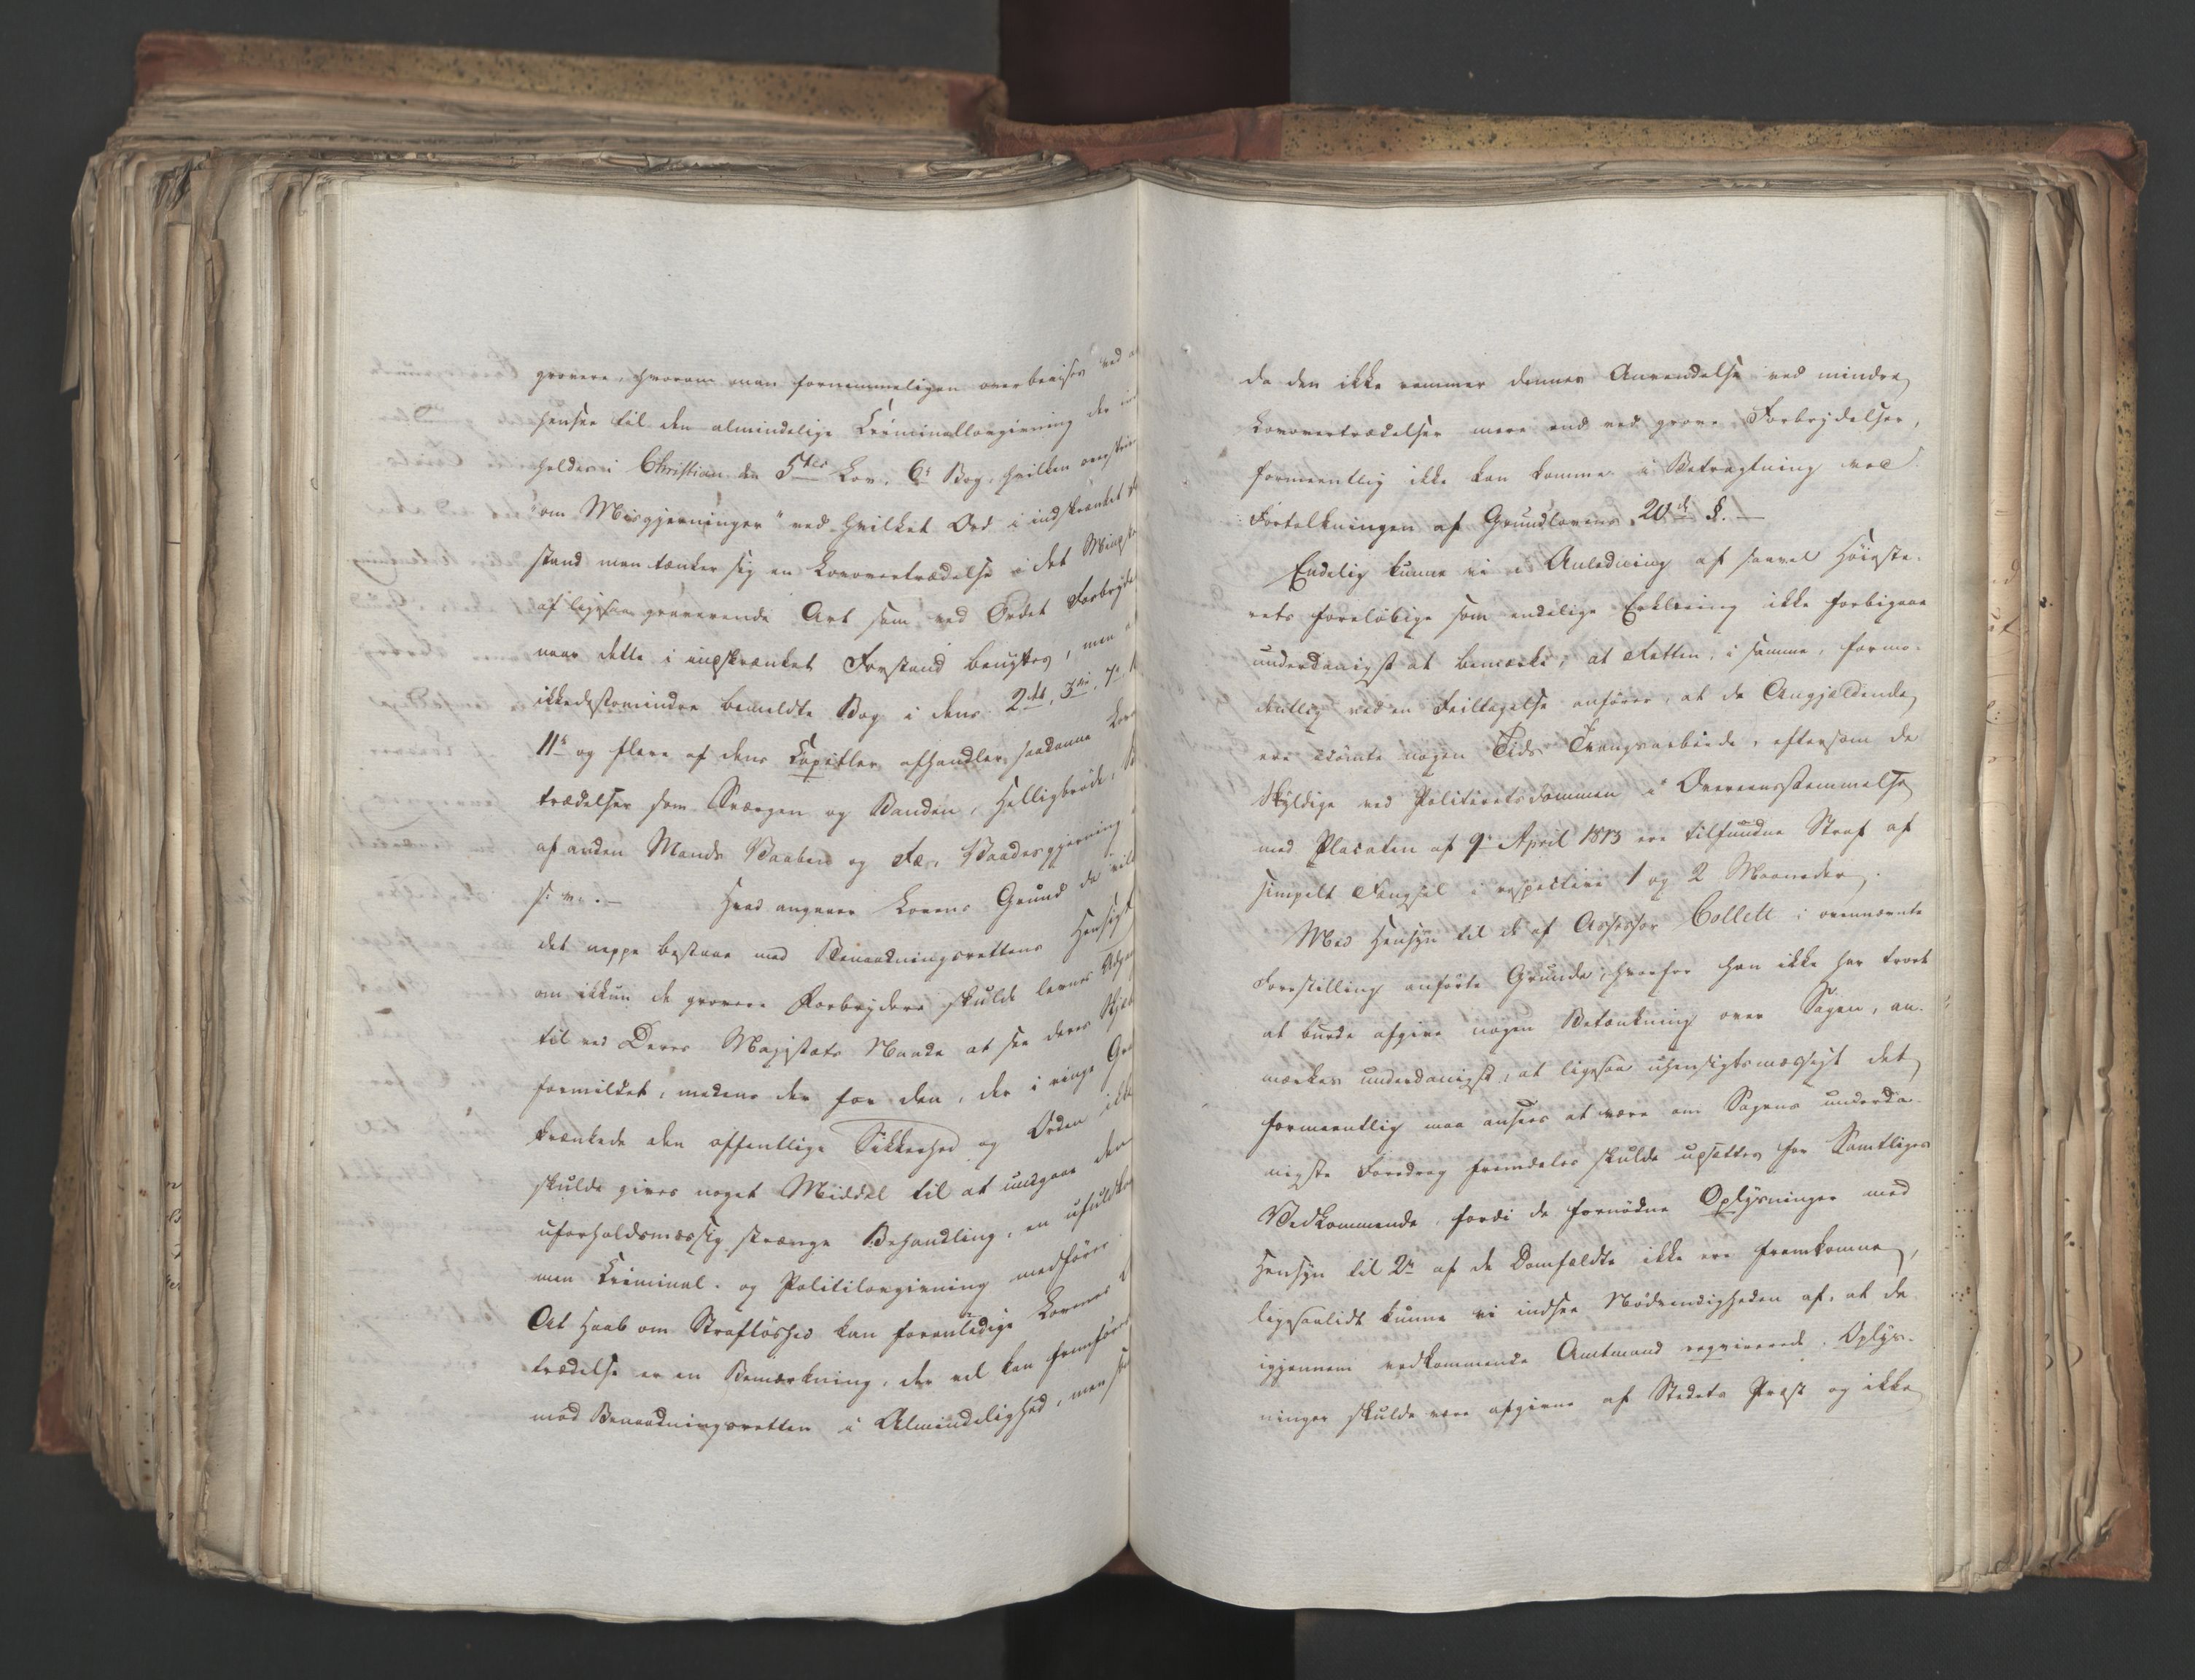 grovere, hvorom man fornemmeligen overbevises ved
hensee til den almindelige Criminallovgivning der
holdes i Christian den 5tes Lov, 6te Bog, hvilken
"om Misgjerninger" ved hvilket Ord i indskrænket
stand man tænker sig en Lovovertrædelse i det
af ligesaa graverende Art som ved Ordet Forbryd
naar dette i indskrænket Forstand benyttes, men
ikkedestomindre bemeldte Bog i dens 2det, 3die, 7de,
11te og flere af dens Capitler afhandler saadanne Lov
trædelser som Sværgen og Banden, Helligbrøde,
af anden Mands Vaaben og Fæ, Vaadesgjerning
s: v: .— Hvad angaaer Lovens Grund da vil
det neppe bestaae med Benaadningsrettens Hensigt
om ikkun de grovere Forbrydere skulde levnes Adgang
til ved Deres Majestæts Naade at see deres Skjæb
formildet, medens der for den, der i ringe Gra
krænkede den offentlige Sikkerhed og Orden ikke
skulde gives noget Middel til at undgaae den
uforholdsmæssig strænge Behandling, en ufuldkom
men Criminal- og Politilovgivning medfører
At Haab om Strafløshed kan foranledige Lovenes
trædelse er en Bemærkning, der vel kan fremføres
mod Benaadningsretten i Almindelighed, men
da den ikke rammer dennes Anvendelse ved mindre
Lovovertrædelser mere end ved grove Forbrydelser,
formeentlig ikke kan komme i Betragtning ved
Fortolkningen af Grundlovens 20de §. —
Endelig kunne vi i Anledning af saavel Høieste-
rets foreløbige som endelige Erklæring ikke forbigaae
underdanigst at bemærke, at Retten, i samme, formo-
dentlig ved en Feiltagelse anfører, at de Angjældende
ere dömte nogen Tids Tvangsarbeide, eftersom de
Skyldige ved Politieretsdommen i Overeensstemmelse
med Placaten af 9de April 1813 ere tilfundne Straf af
simpelt Fængsel i respective 1 og 2 Maaneder.
Med Hensyn til de af Assessor Collett i ovennævnte
Forestilling anførte Grunde, hvorfor han ikke har troet
at burde afgive nogen Betænkning over Sagen, an-
mærkes underdanigst, at ligesaa uhensigtsmæssigt det
formeentlig maa ansees at være om Sagens underda-
nigste Foredrag fremdeles skulde upsættes for Samtliges
Vedkommende, fordi de fornødne Oplysninger med
Hensyn til 2de af de Domfældte ikke ere fremkomne,
ligesaalidt kunne vi indsee Nødvendigheden af, at de
igjennem vedkommende Amtmand reqvirerede Oplys-
ninger skulde være afgivne af Stedets Præst og ikke